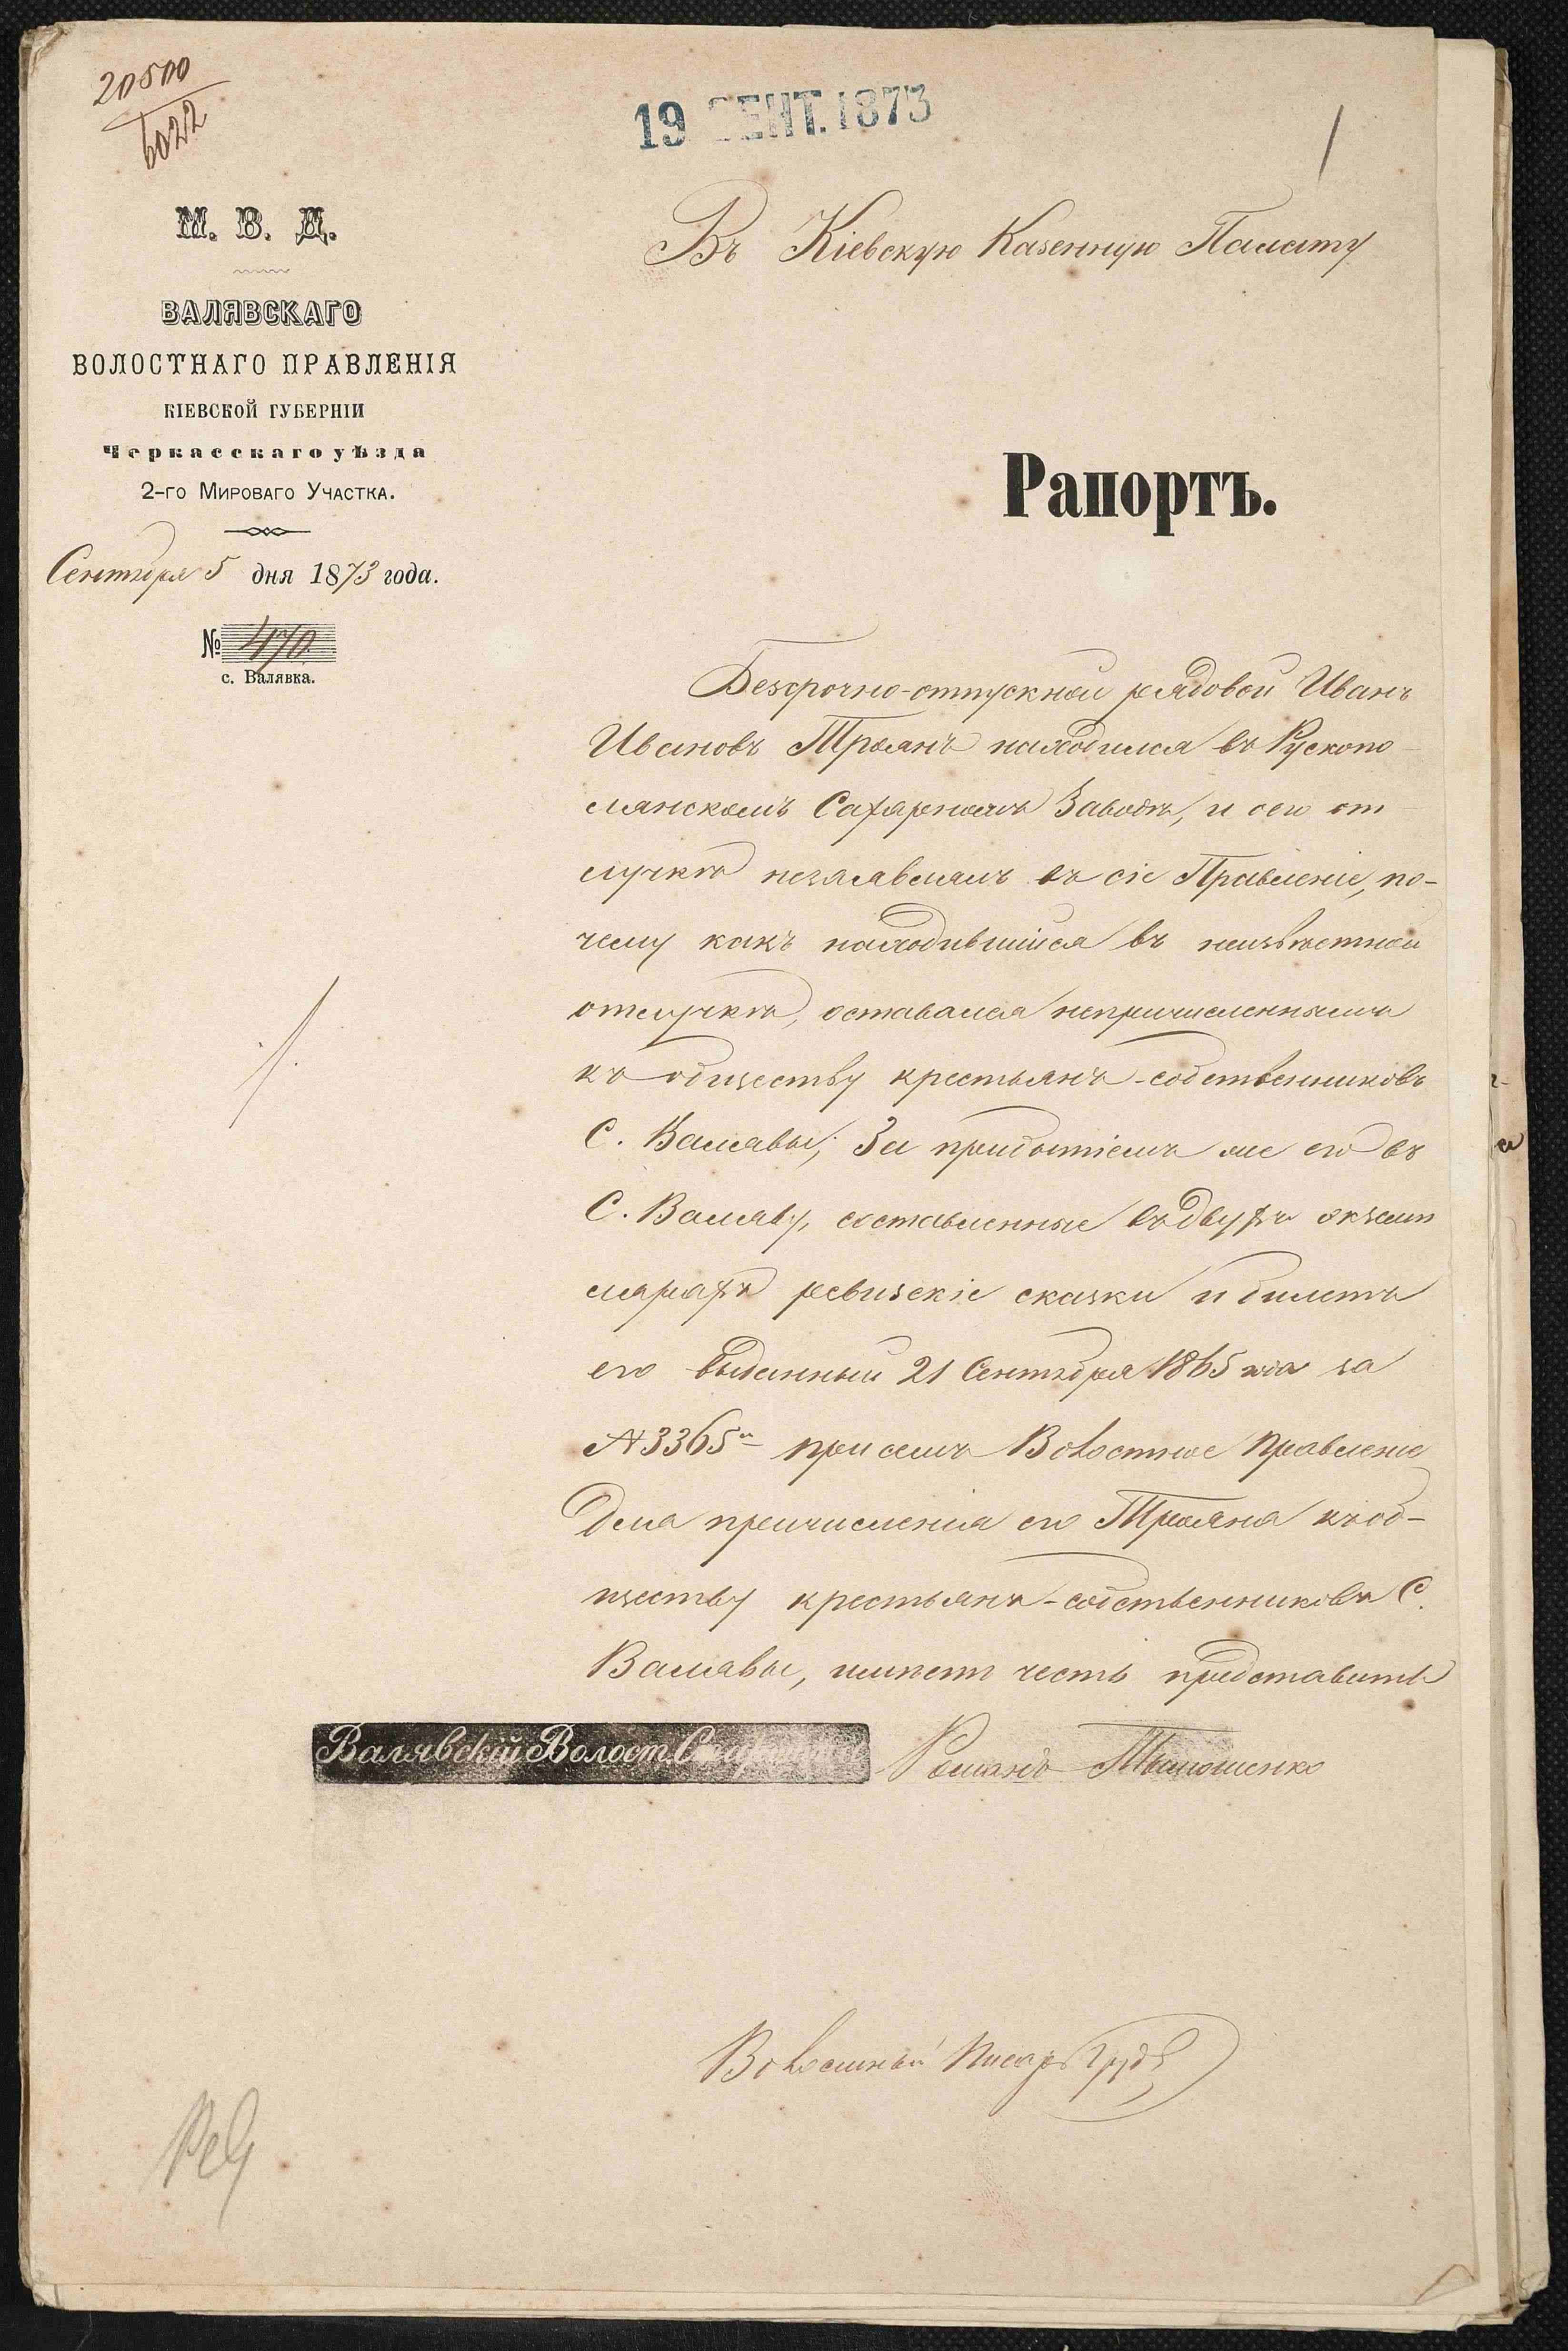 20500
6022
19 СЕНТ. 1873
1
М. В. Д.
ВАЛЯВСКАГО
ВОЛОСТНАГО ПРАВЛЕНІЯ
КІЕВСКОЙ ГУБЕРНІИ
Черкасскаго уѣзда
2-го Мироваго Участка.
Сентября 5 дня 1873 года.
№ 470
с. Валявка.
Въ Кіевскую Казенную Палату
Рапортъ.
Безсрочно-отпускной рядовой Иванъ
Ивановъ Троянъ находился въ Рускопо-
лянскомъ Сахарномъ Заводѣ, и о
лучкѣ незаявлялъ въ сіе Правленіе, по-
чему какъ находившійся въ неизвѣстной
отлучкѣ, оставался непричисленнымъ
къ обществу крестьянъ-собственниковъ
С. Валявы; За прибытіемъ же его въ
С. Валяву, составленные въ двухъ экземп
лярахъ ревизскіе сказки и билетъ
его выданный 21 Сентября 1865 года за
№ 3365 при семъ Волостное Правленіе
для причисленія его Трояна къ об-
ществу крестьянъ-собственниковъ С.
Валявы, имѣетъ честь представить
Валявскій Волост. Старшина Романъ
Волостный Писарь